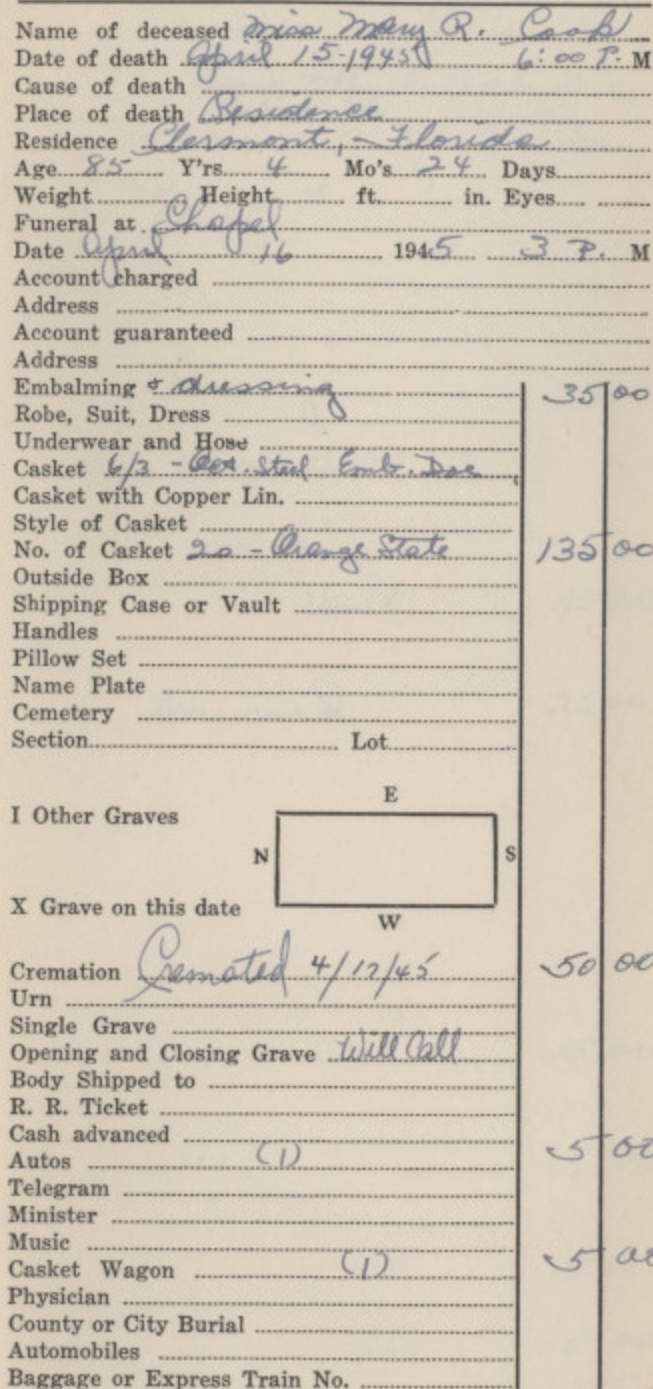 Name of deceased Miss Mary R. Cook
Date of death April 15-1945 6:00 P. M
Cause of death
Place of death Residence
Residence Clermont, - Florida
Age 85 Y'rs 4 Mo's 24 Days
Weight Height ft. in. Eyes
Funeral at Chapel
Date April 16 1945 3 P. M
Account charged
Address
Account guaranteed
Address
Embalming & dressing 35 00
Robe, Suit, Dress
Underwear and Hose
Casket 6/3 - Oct. Steel Emb. Doe
Casket with Copper Lin.
Style of Casket
No. of Casket 20 - Orange State 135 00
Outside Box
Shipping Case or Vault
Handles
Pillow Set
Name Plate
Cemetery
Section Lot
E
I Other Graves
N S
X Grave on this date
W
Cremation Cremated 4/17/45 50 00
Urn
Single Grave
Opening and Closing Grave Will Call
Body Shipped to
R. R. Ticket
Cash advanced
Autos (1) 5 00
Telegram
Minister
Music
Casket Wagon (1) 5 00
Physician
County or City Burial
Automobiles
Baggage or Express Train No.